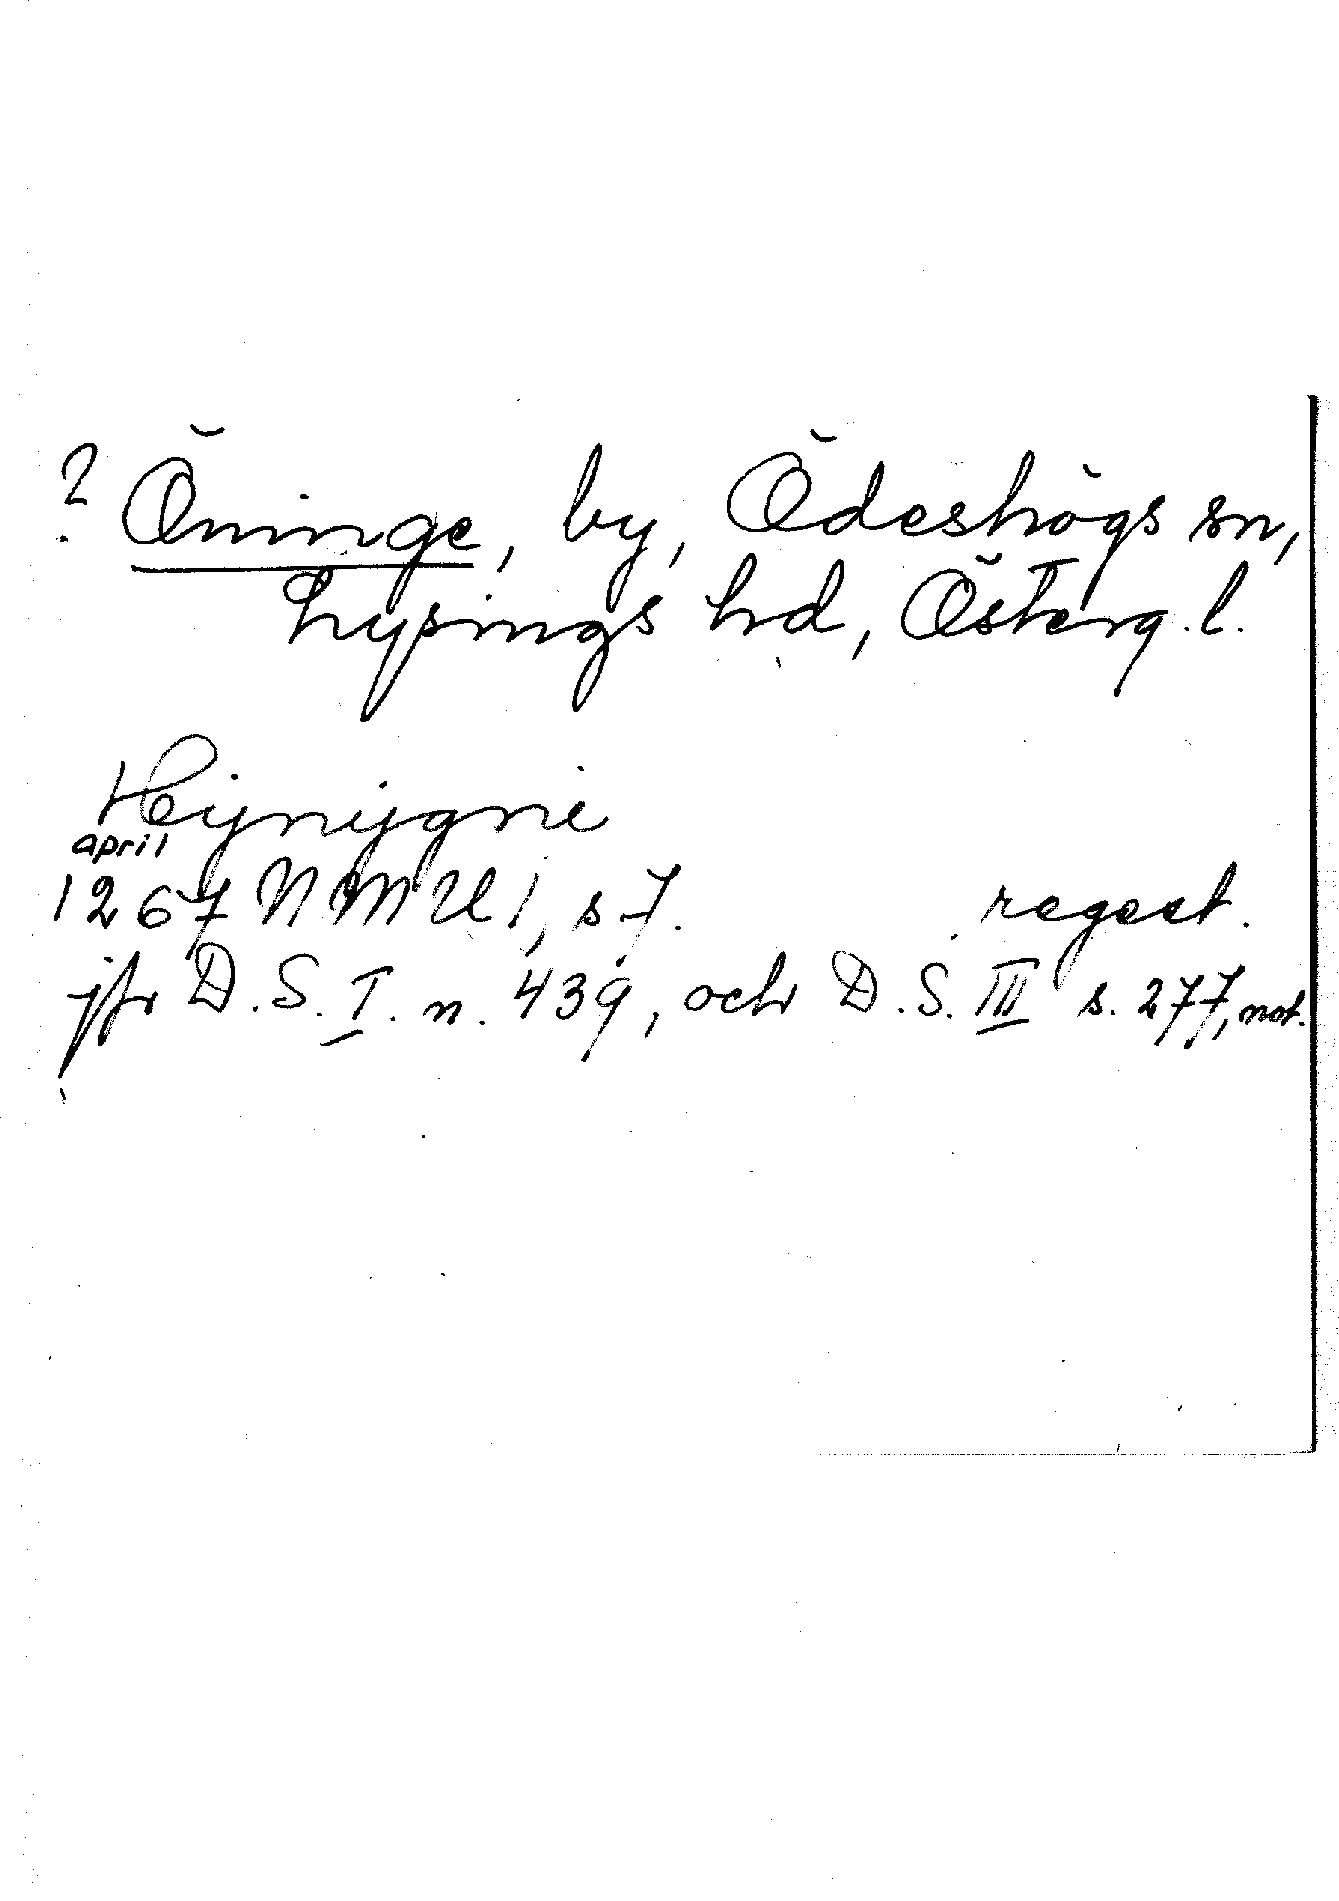 ? Öninge, by, Ödeshögs sn,
Lysings hd, Österg. l.
Hijnijgnie
april
1267 NMU 1, s 7. regest.
jfr D.S. I. n. 439, och D.S. III s. 277, not.